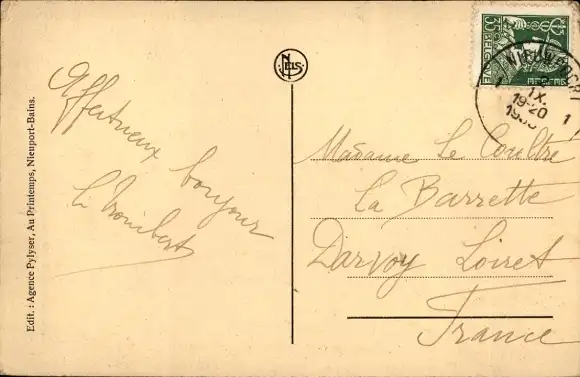 Edit. : Agence Pylyser, Au Printemps, Nieuport-Bains.
Affectueux bonjour
NELS
35
BELGIQUE
IX.
19-20
1
Madame Le Coultre
La Barrette
Darvoy Loiret
France